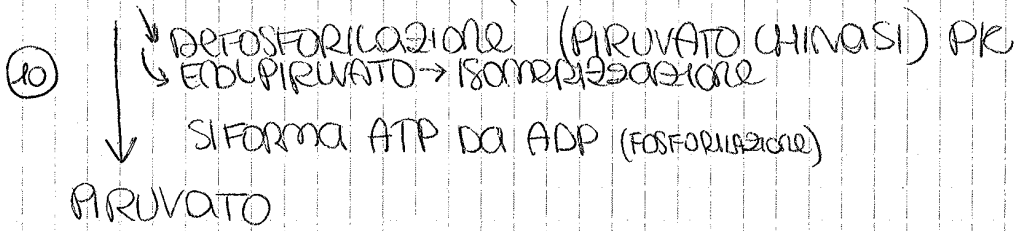 DEFOSFORILAZIONE (PIRUVATO CHINASI) PK
10 ENOLPIRUVATO → ISOMERIZZAZIONE
SI FORMA ATP DA ADP (FOSFORILAZIONE)
PIRUVATO